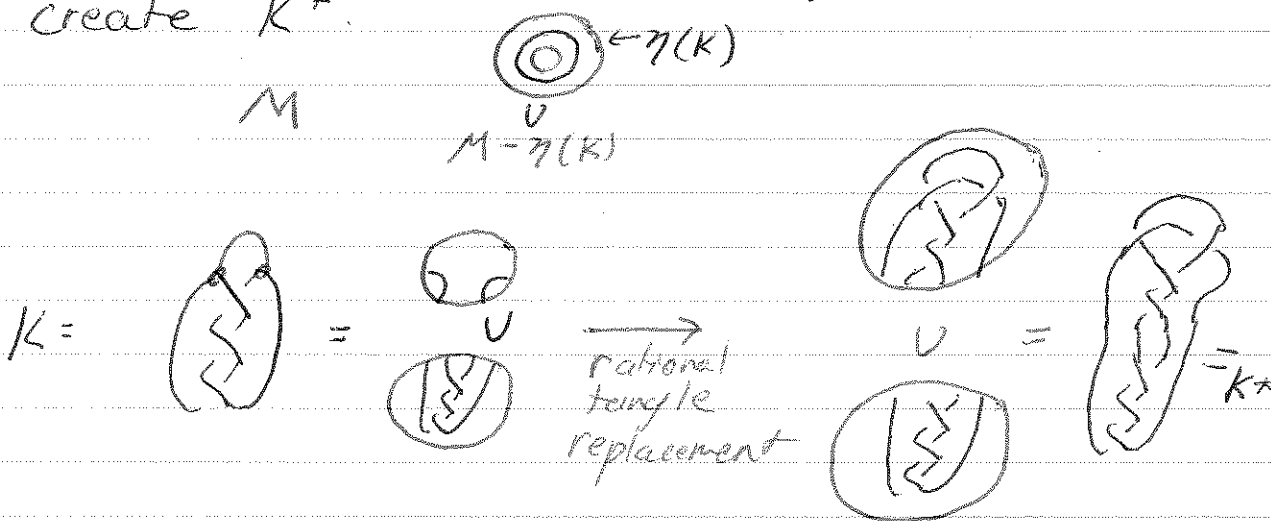 create K*
←η(K)
M
∪
M-η(K)
K =
=
∪
→
rational
tangle
replacement
∪
=
= K*